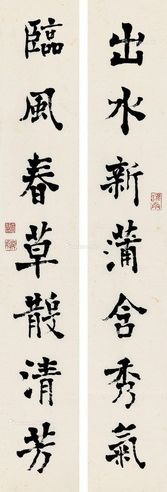 出水新蒲含秀氣
臨風春草散清芳